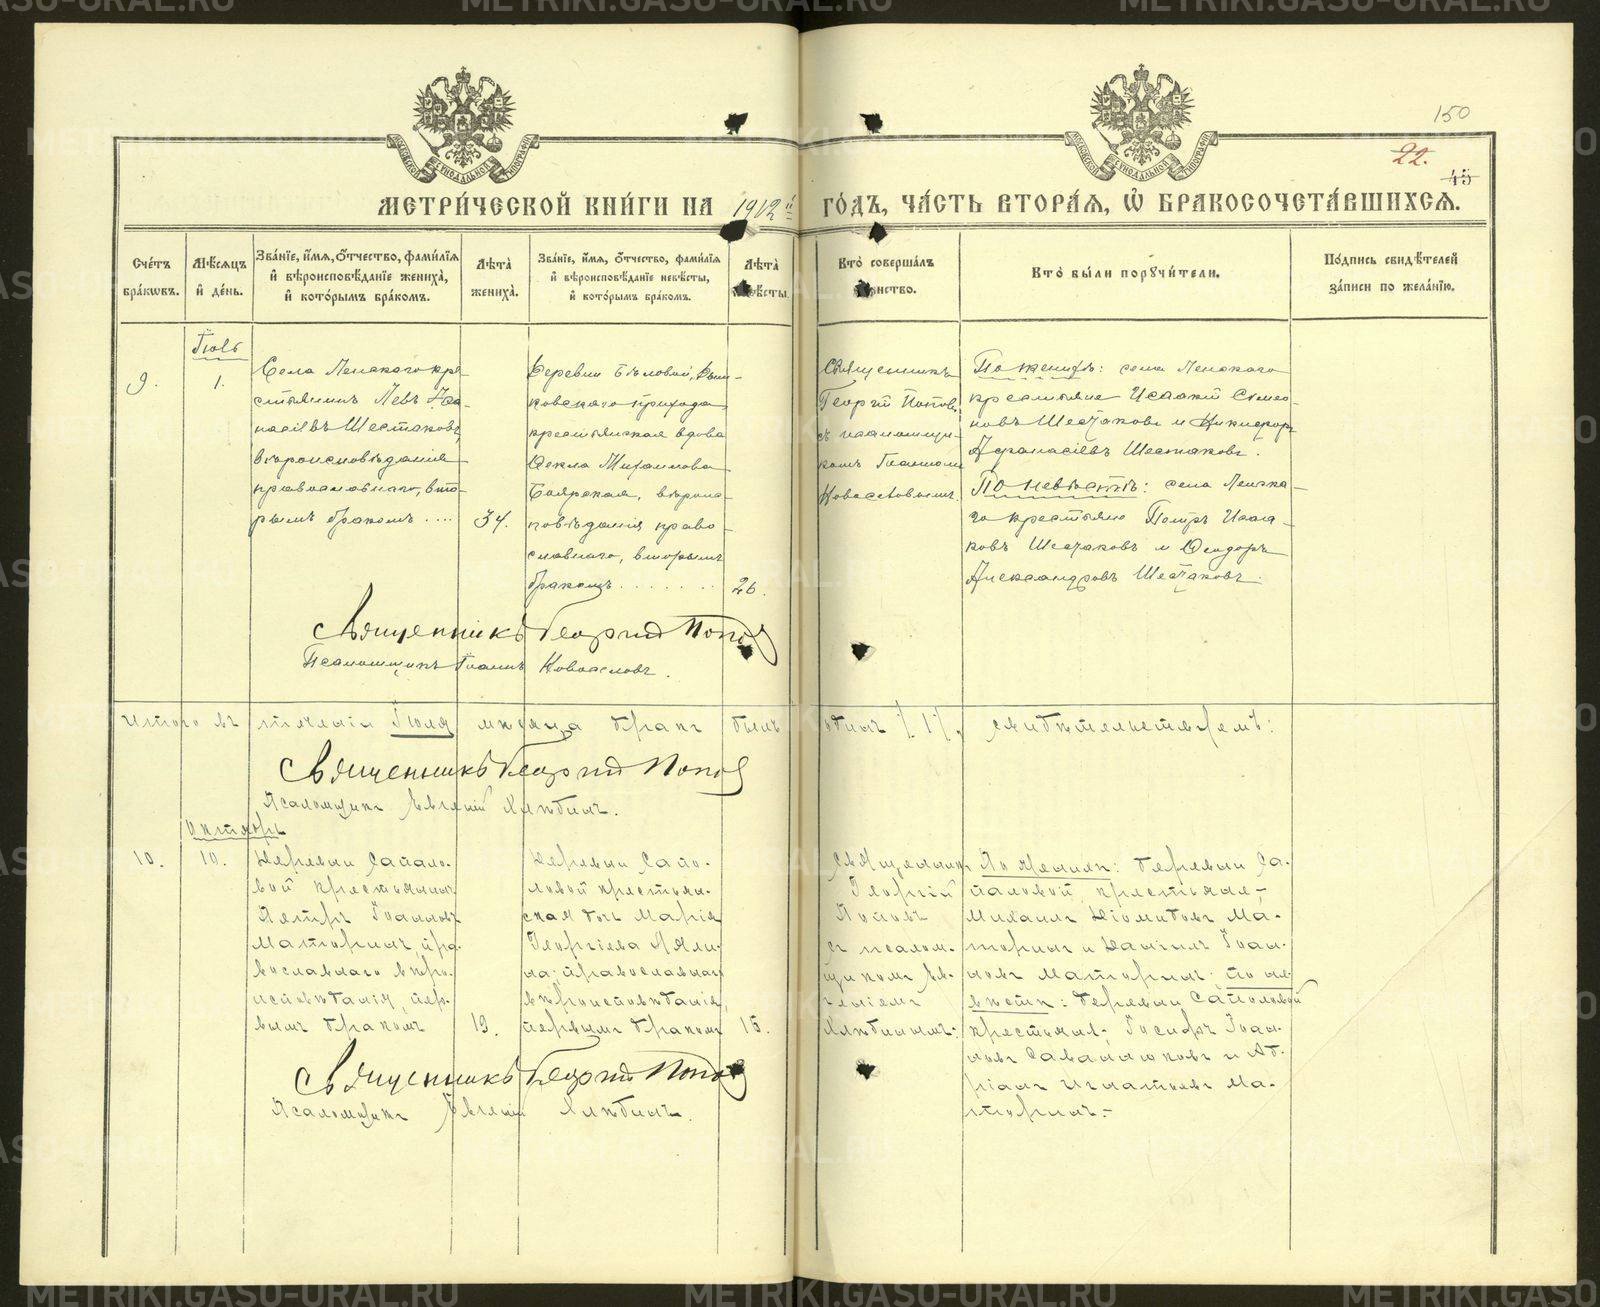 150
22.
45
МЕТРИ́ЧЕСКОЙ КНИ́ГИ НА 1912 й ГО́ДЪ, ЧА́СТЬ ВТОРА́Я, Ѡ БРАКОСОЧЕТА́ВШИХСЯ.
Сче́тъ бра́кѡвъ.
Мѣ́сяцъ и́ де́нь.
Зва́нїе, и́мя, ѻ́тчество, фами́лїя и́ вѣроисповѣ́данїе жениха̀, и́ кото́рымъ бра́комъ.
Лѣ́та жениха̀.
Зва́нїе, и́мя, ѻ́тчество, фами́лїя и́ вѣроисповѣ́данїе невѣ́сты, и́ кото́рымъ бра́комъ.
Лѣ́та невѣ́сты.
Кто̀ соверша́лъ таинство.
Кто̀ бы́ли порꙋчи́тели.
По́дпись свидѣ́телей за́писи по жела́нїю.
9.
1.
Села Ленскаго кре-
стьянинъ Левъ
Шестаковъ,
вѣроисповѣданія
православнаго, вто-
рымъ бракомъ ....
34.
Деревни Бѣловой,
ковскаго прихода
крестьянская вдова
Ѳекла
Боярская, вѣроис-
повѣданія право-
славнаго, вторымъ
бракомъ . . . . . . .
26.
Священникъ
Георгій Поповъ
съ псаломщи-
комъ Іоанномъ
По женихѣ: села Ленскаго
крестьяне Исаакій Симео-
новъ Шестаковъ и Никифоръ
Аѳанасіевъ Шестаковъ.
По невѣстѣ: села Ленска-
го крестьяне Петръ Исаа-
ковъ Шестаковъ и Ѳеодоръ
Александровъ Шестаковъ.
Священникъ Георгій Поповъ
Псаломщикъ Іоаннъ
Итого въ теченіи Іюля мѣсяца бракъ былъ одинъ /1/, свидѣтельствуемъ:
Священникъ Георгій Поповъ
Псаломщикъ Евгеній Хлѣбинъ.
Октябрь
10.
10.
Деревни Сапало-
вой крестьянинъ
Петръ Іоанновъ
Маторинъ, пра-
вославнаго вѣро-
исповѣданія, пер-
вымъ бракомъ
19.
Деревни Сапо-
ловой крестьян-
ская дочь Марія
Георгіева
православнаго
вѣроисповѣданія
первымъ бракомъ
Священникъ
Георгій
Поповъ
съ псалом-
щикомъ Ев-
геніемъ
Хлѣбинымъ:
По женихѣ: деревни Са-
паловой, крестьяне,-
Михаилъ Діомидовъ Ма-
торинъ и Даніилъ Іоан-
новъ Маторинъ; по не-
вѣстѣ: деревни Сапаловой
крестьяне, Іосифъ Іоан-
новъ и Ад-
ріанъ Игнатіевъ Ма-
торинъ.-
Священникъ Георгій Поповъ
Псаломщикъ Евгеній Хлѣбинъ.
METRIKI.GASO-URAL.RU